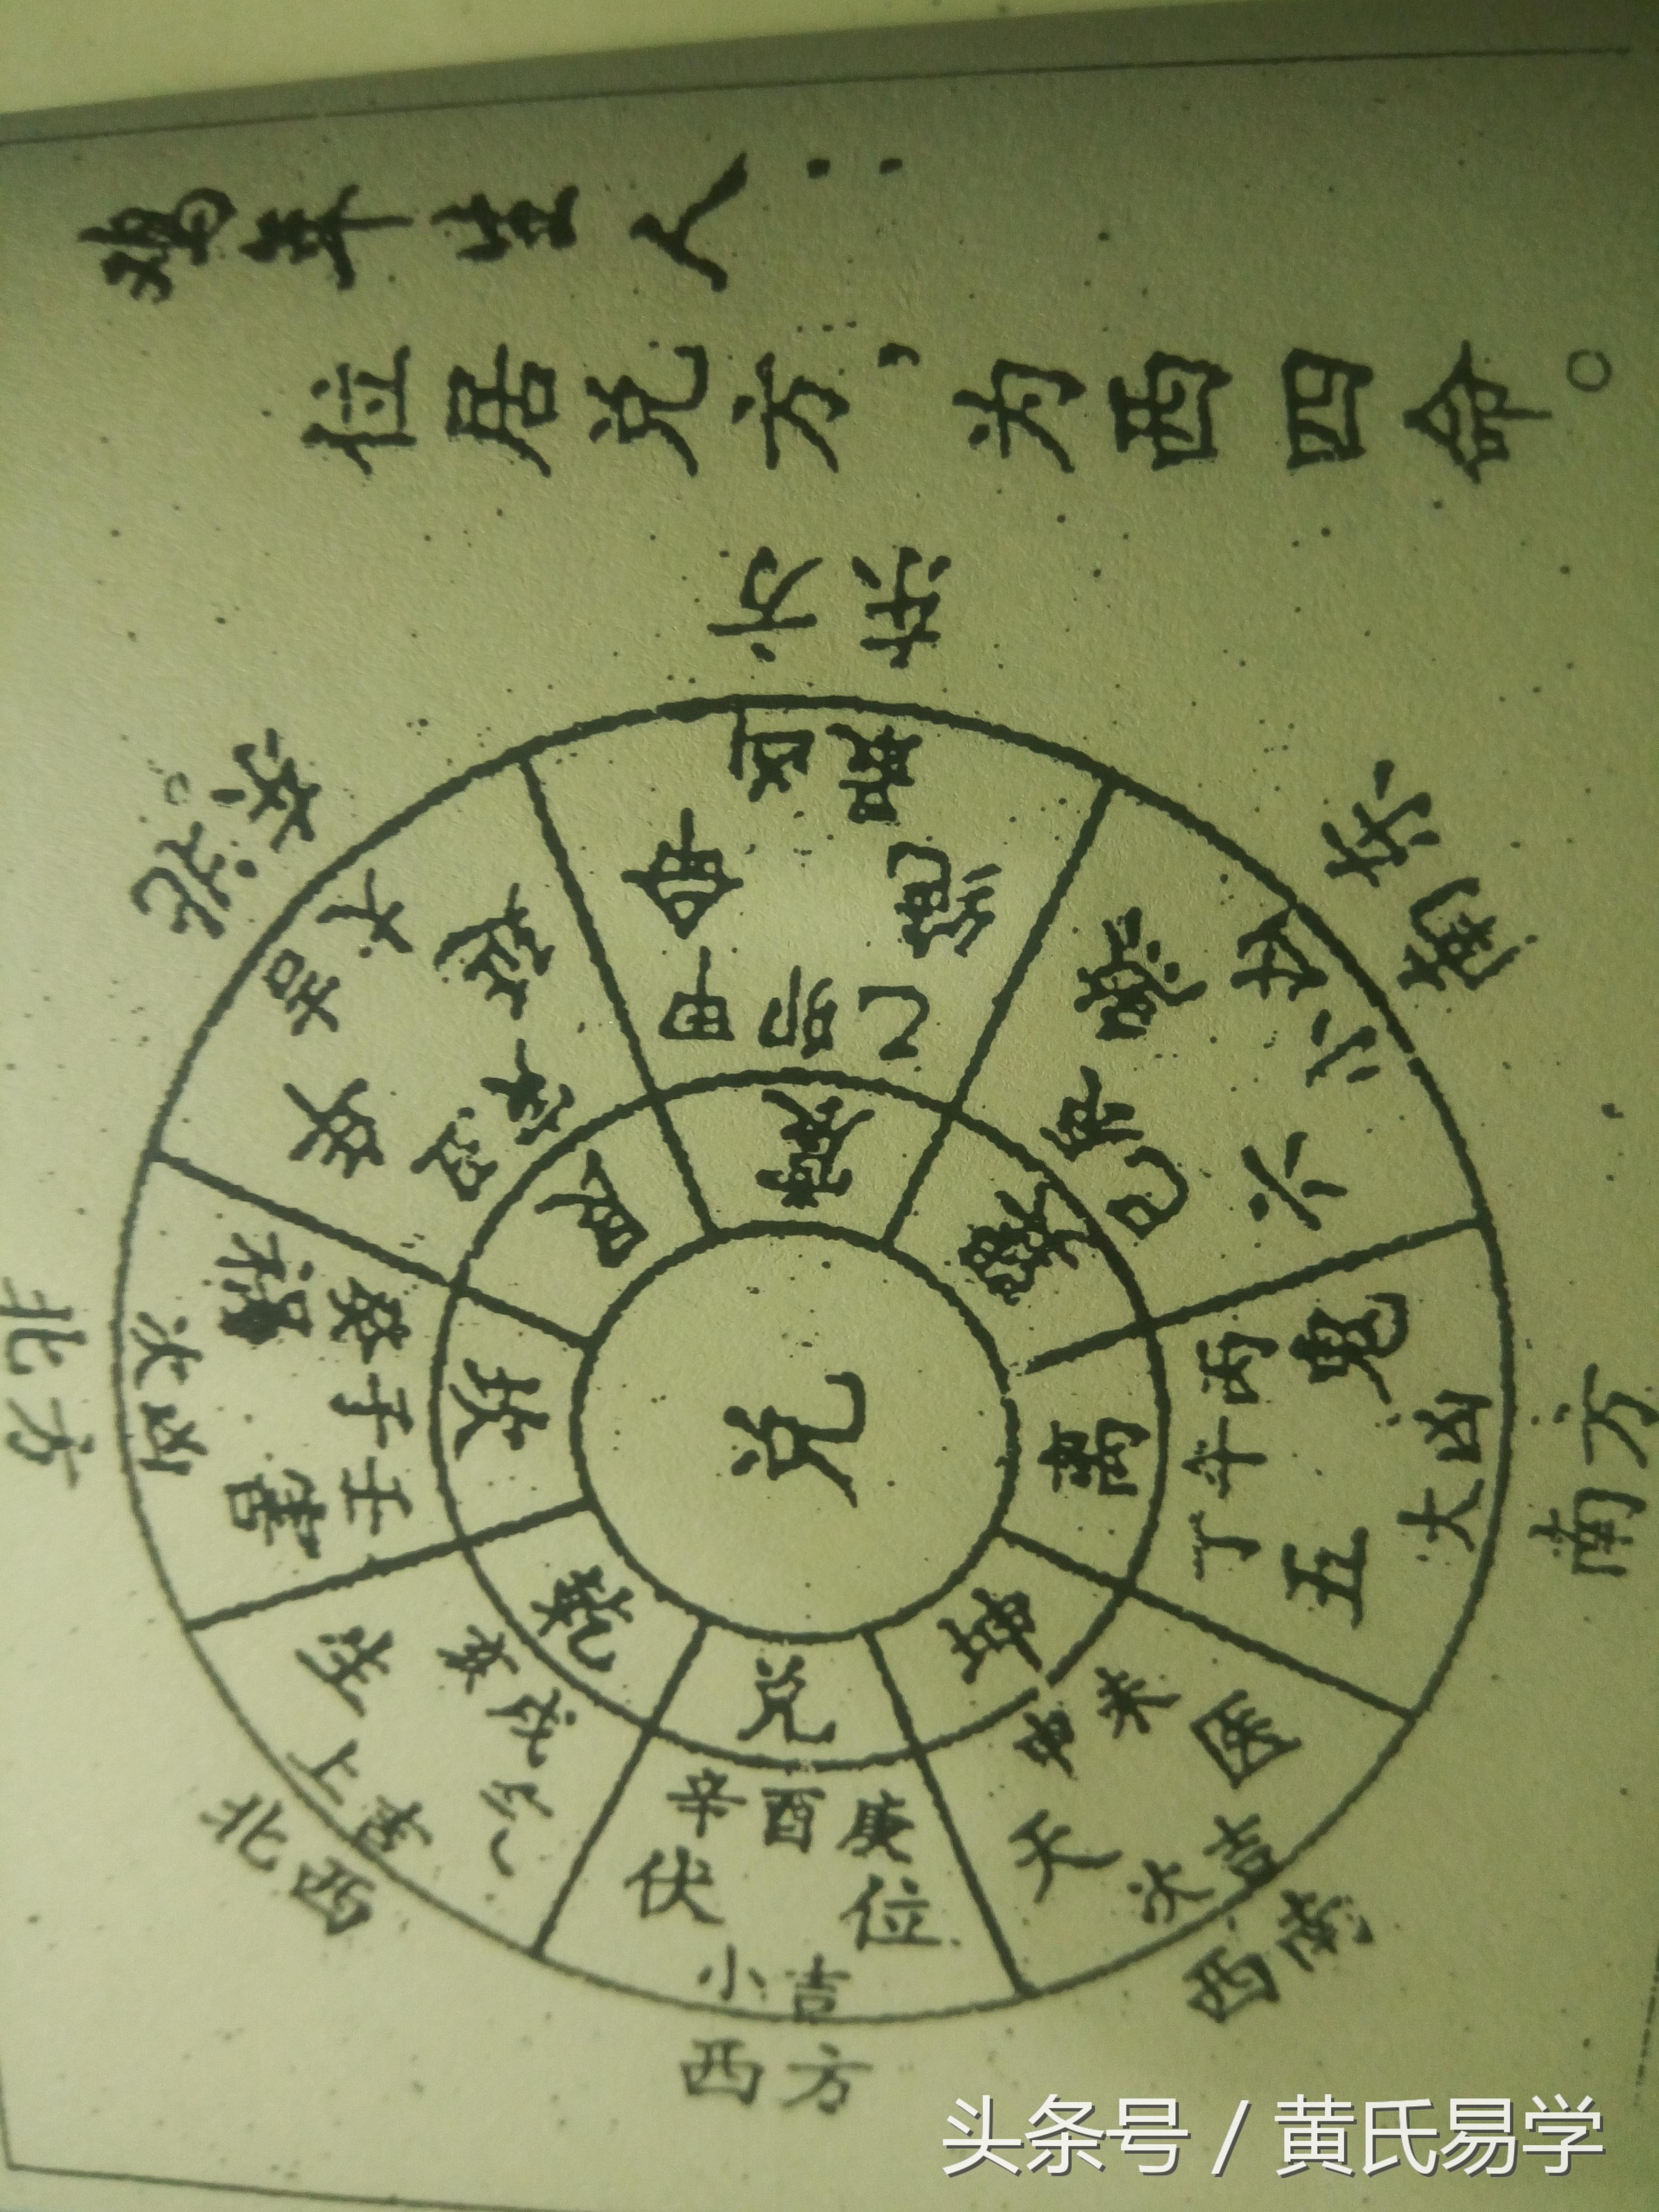 鸡年生人：
位居兑方，为西四命。
东方
最凶
绝命
甲卯乙
震
东南
次小
六煞
辰巳
巽
南方
大凶
五鬼
丙午丁
离
西南
次吉
天医
未申
坤
西方
小吉
伏位
辛酉庚
兑
西北
上吉
生
亥戌
乾
北方
次凶
祸害
癸子壬
坎
东北
大吉
延年
寅丑
艮
兑
头条号 / 黄氏易学